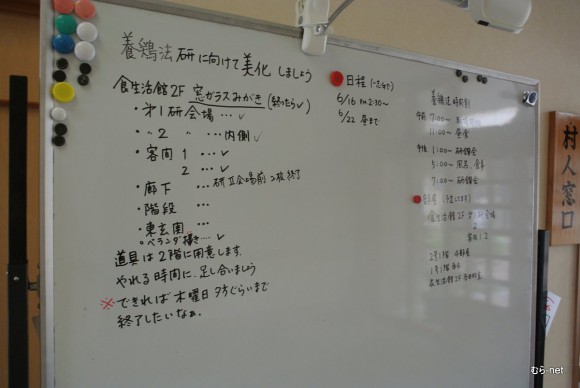 養鶏法研に向けて美化しましょう
食生活館2F 窓ガラスみがき(終ったら✓)
・第1研会場 … ✓
・〃2 〃 … 内側 ✓
・客間 1 … ✓
2 … ✓
・廊下 … 研Ⅱ会場前 2枚終了
・階段 …
・東玄関 …
・ベランダ掃き … ✓
道具は2階に用意します。
やれる時間に、足し合いましょう
※できれば木曜日夕方ぐらいまで
終了したいなぁ。
日程
6/16 PM2:30〜
6/22 昼まで
養鶏法時間割
午前 7:00〜
11:00〜 昼食
午後 1:00〜 研鑽会
5:00〜 風呂、食事
7:00〜 研鑽会
食生活館2F
1 2
村人窓口
むら-net